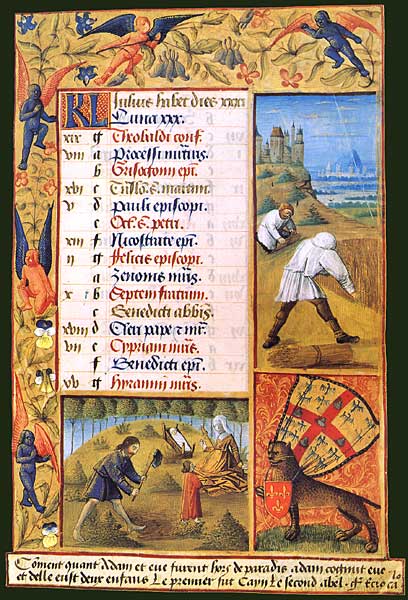 KL Julius habet dies xxxi
Luna xxx.
xix g Theobaldi conf.
viii a Processi mrs.
b
xvi c
v d Pauli episcopi
e Oct. S. petri
xiii f Nicostrate epi.
ii g Felicis episcopi
a Zenonis mrs.
x b Septem fratrum
c Benedicti abbis.
xviii d Cleti pape z mr.
vii e Cypriani mrs.
f Benedicti epi.
xv g
Coment quant Adam et eve furent hors de paradis adam cognut eve
et delle eust deux enfans Le premier fut Cayn Le second abel